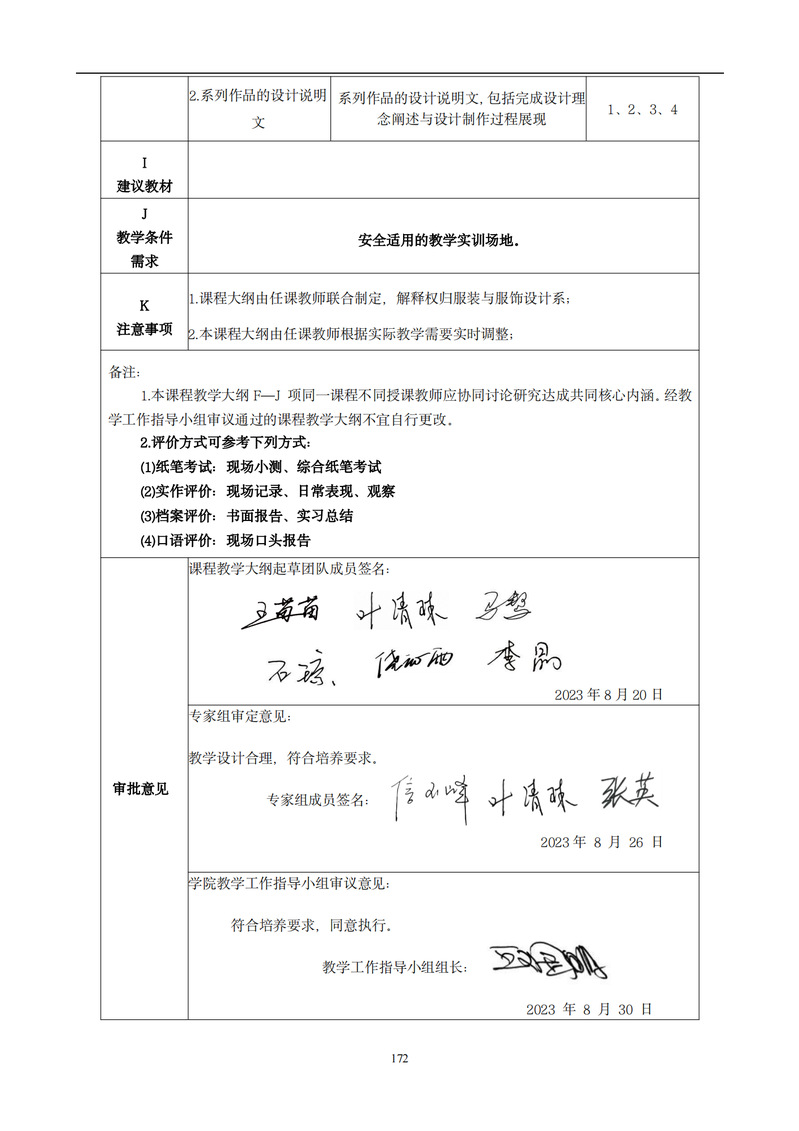 2.系列作品的设计说明
文
系列作品的设计说明文,包括完成设计理
念阐述与设计制作过程展现
1、2、3、4
I
建议教材
J
教学条件
需求
安全适用的教学实训场地。
K
注意事项
1.课程大纲由任课教师联合制定，解释权归服装与服饰设计系；
2.本课程大纲由任课教师根据实际教学需要实时调整；
备注：
1.本课程教学大纲 F—J 项同一课程不同授课教师应协同讨论研究达成共同核心内涵。经教
学工作指导小组审议通过的课程教学大纲不宜自行更改。
2.评价方式可参考下列方式：
(1)纸笔考试：现场小测、综合纸笔考试
(2)实作评价：现场记录、日常表现、观察
(3)档案评价：书面报告、实习总结
(4)口语评价：现场口头报告
审批意见
课程教学大纲起草团队成员签名：
王苗苗 叶清珠
石琼、 李晶
2023 年 8 月 20 日
专家组审定意见：
教学设计合理，符合培养要求。
专家组成员签名： 叶清珠 张英
2023 年 8 月 26 日
学院教学工作指导小组审议意见：
符合培养要求，同意执行。
教学工作指导小组组长：
2023 年 8 月 30 日
172